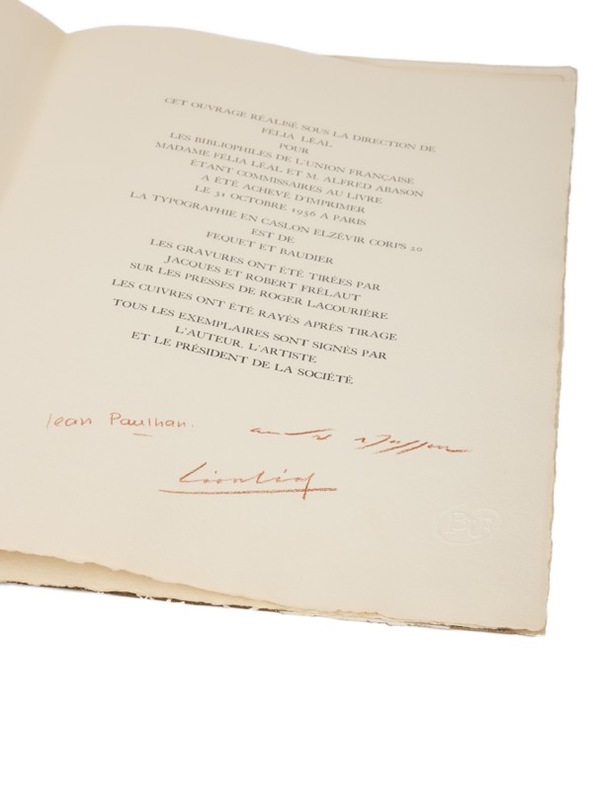 CET OUVRAGE RÉALISÉ SOUS LA DIRECTION DE
FÉLIA LÉAL
POUR
LES BIBLIOPHILES DE L'UNION FRANÇAISE
MADAME FÉLIA LÉAL ET M. ALFRED ABASON
ÉTANT COMMISSAIRES AU LIVRE
A ÉTÉ ACHEVÉ D'IMPRIMER
LE 31 OCTOBRE 1956 A PARIS
LA TYPOGRAPHIE EN CASLON ELZÉVIR CORPS 20
EST DE
FEQUET ET BAUDIER
LES GRAVURES ONT ÉTÉ TIRÉES PAR
JACQUES ET ROBERT FRÉLAUT
SUR LES PRESSES DE ROGER LACOURIÈRE
LES CUIVRES ONT ÉTÉ RAYÉS APRÈS TIRAGE
TOUS LES EXEMPLAIRES SONT SIGNÉS PAR
L'AUTEUR, L'ARTISTE
ET LE PRÉSIDENT DE LA SOCIÉTÉ
Jean Paulhan. andré masson